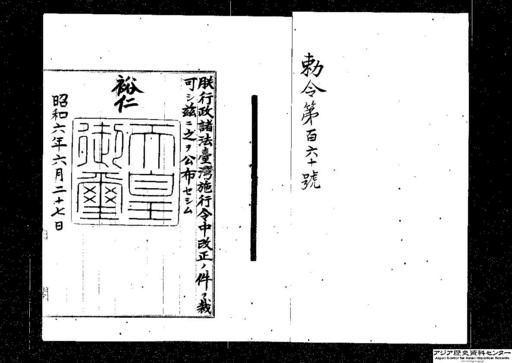 勅令第百六十號
朕行政諸法臺灣施行令中改正ノ件ヲ裁
可シ茲ニ之ヲ公布セシム
裕仁
天皇
御璽
昭和六年六月二十七日
アジア歴史資料センター
Japan Center for Asian Historical Records